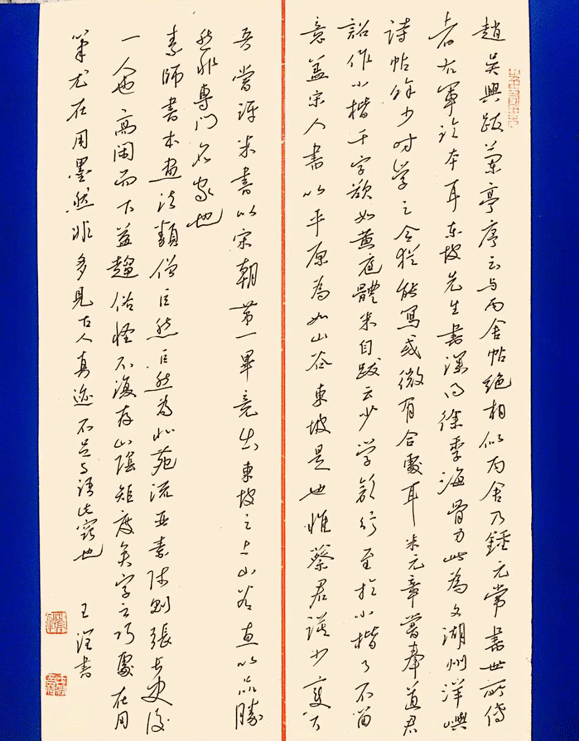 趙吳興跋蘭亭序云与丙舍帖絶相似丙舍乃鍾元常書世所傳
者右軍臨本耳東坡先生書深得徐季海骨力此為文湖州洋嶼
诗帖余少时学之今猶能寫或微有合處耳米元章嘗奉道君
詔作小楷千字欲如黄庭體米自跋云少学顔行至於小楷了不留
意盖宋人書以平原為如山谷東坡是也惟蔡君谟少變耳
吾嘗评米書以宋朝第一畢竟出東坡之上山谷直以品勝
然非專門名家也
素師書本畫法類僧巨然巨然為北苑流亞素師则張長史後
一人也高閑而下益趨俗怪不復存山陰矩度矣字之巧處在用
筆尤在用墨然非多見古人真迹不足与语此窍也
王 書